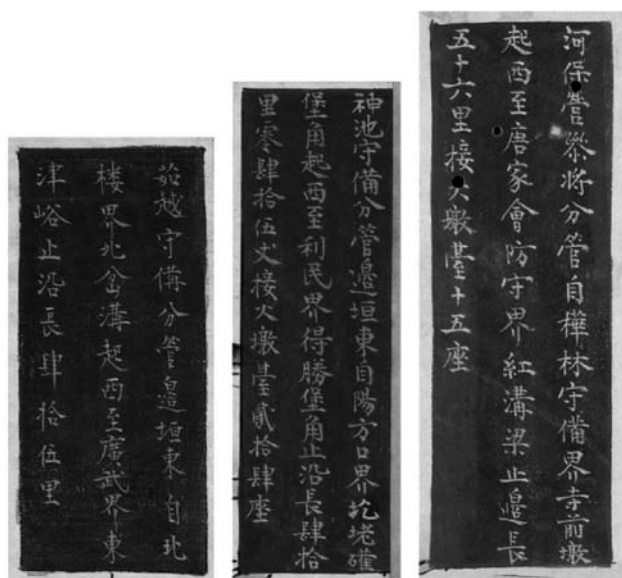 河保營叅將分管自樺林守備界寺前墩
起西至唐家會防守界紅溝梁止邊長
五十六里接火墩臺十五座
神池守備分管邊垣東自陽方口界圪
堡角起西至利民界得勝堡角止沿長肆拾
里零肆拾伍丈接火墩臺貳拾肆座
茹越守備分管邊垣東自北
楼界北岔溝起西至廣武界東
津峪止沿長肆拾伍里